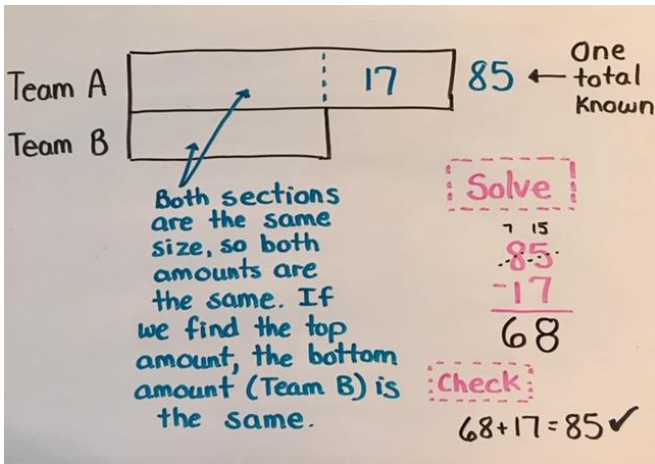 Team A
17
85
← One
total
Known
Team B
Both sections
are the same
size, so both
amounts are
the same. If
we find the top
amount, the bottom
amount (Team B) is
the same.
Solve
7 15
85
-17
68
Check
68+17=85✓